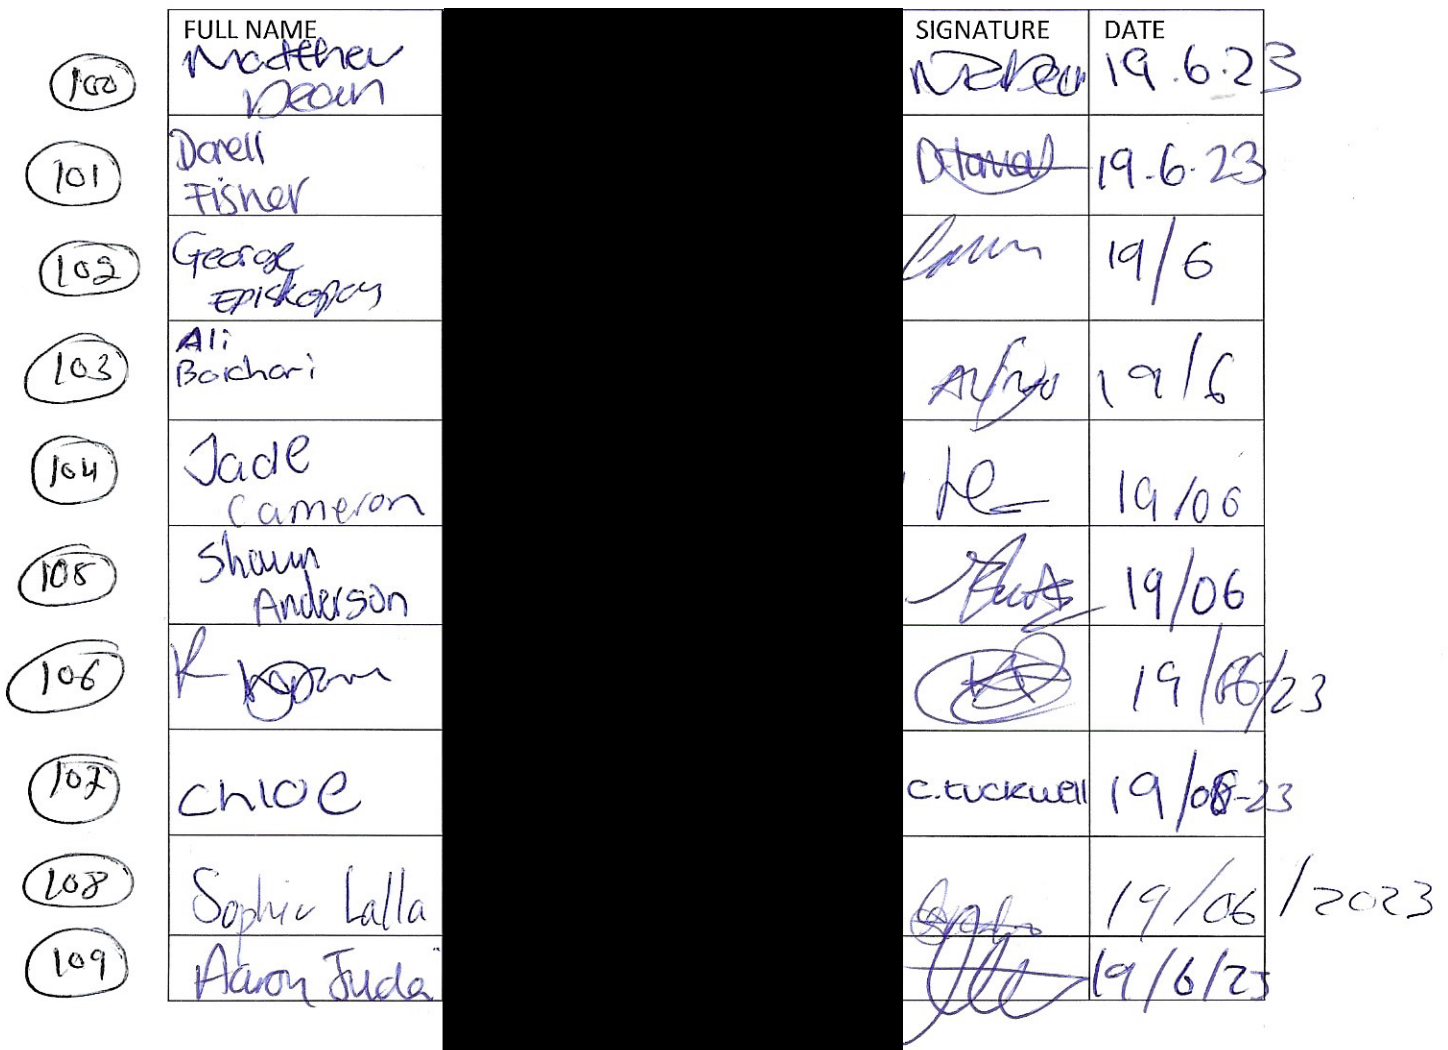 FULL NAME SIGNATURE DATE
100 Matthew Dean 19.6.23
101 Darell Fisher 19.6.23
102 George Episkopos 19/6
103 Ali Borchari 19/6
104 Jade Cameron 19/06
105 Shaun Anderson 19/06
106 K 19/06/23
107 Chloe C.Tuckwell 19/06-23
108 Sophie Lalla 19/06/2023
109 Aaron Juda 19/6/23